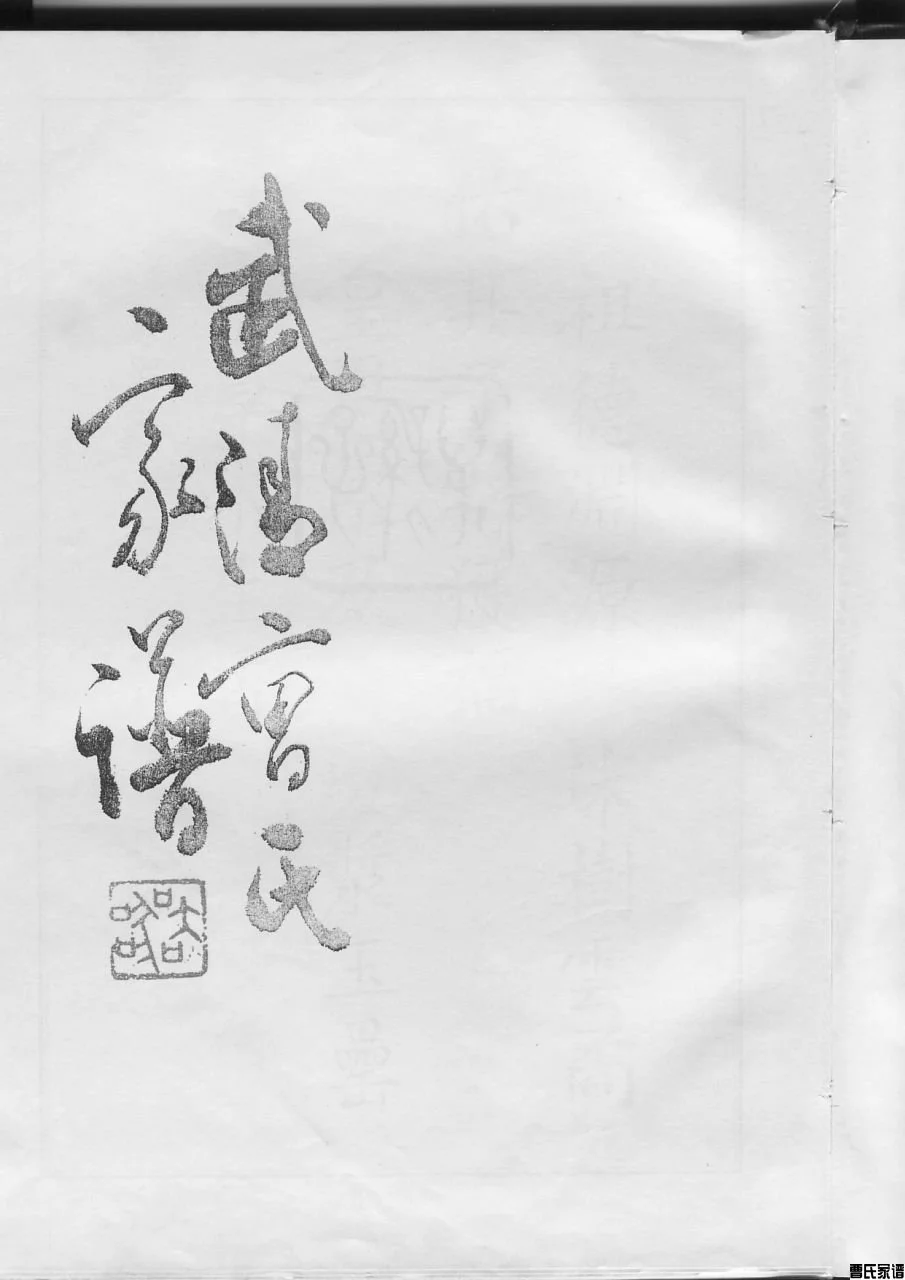 武清曹氏
家谱
曹氏家谱